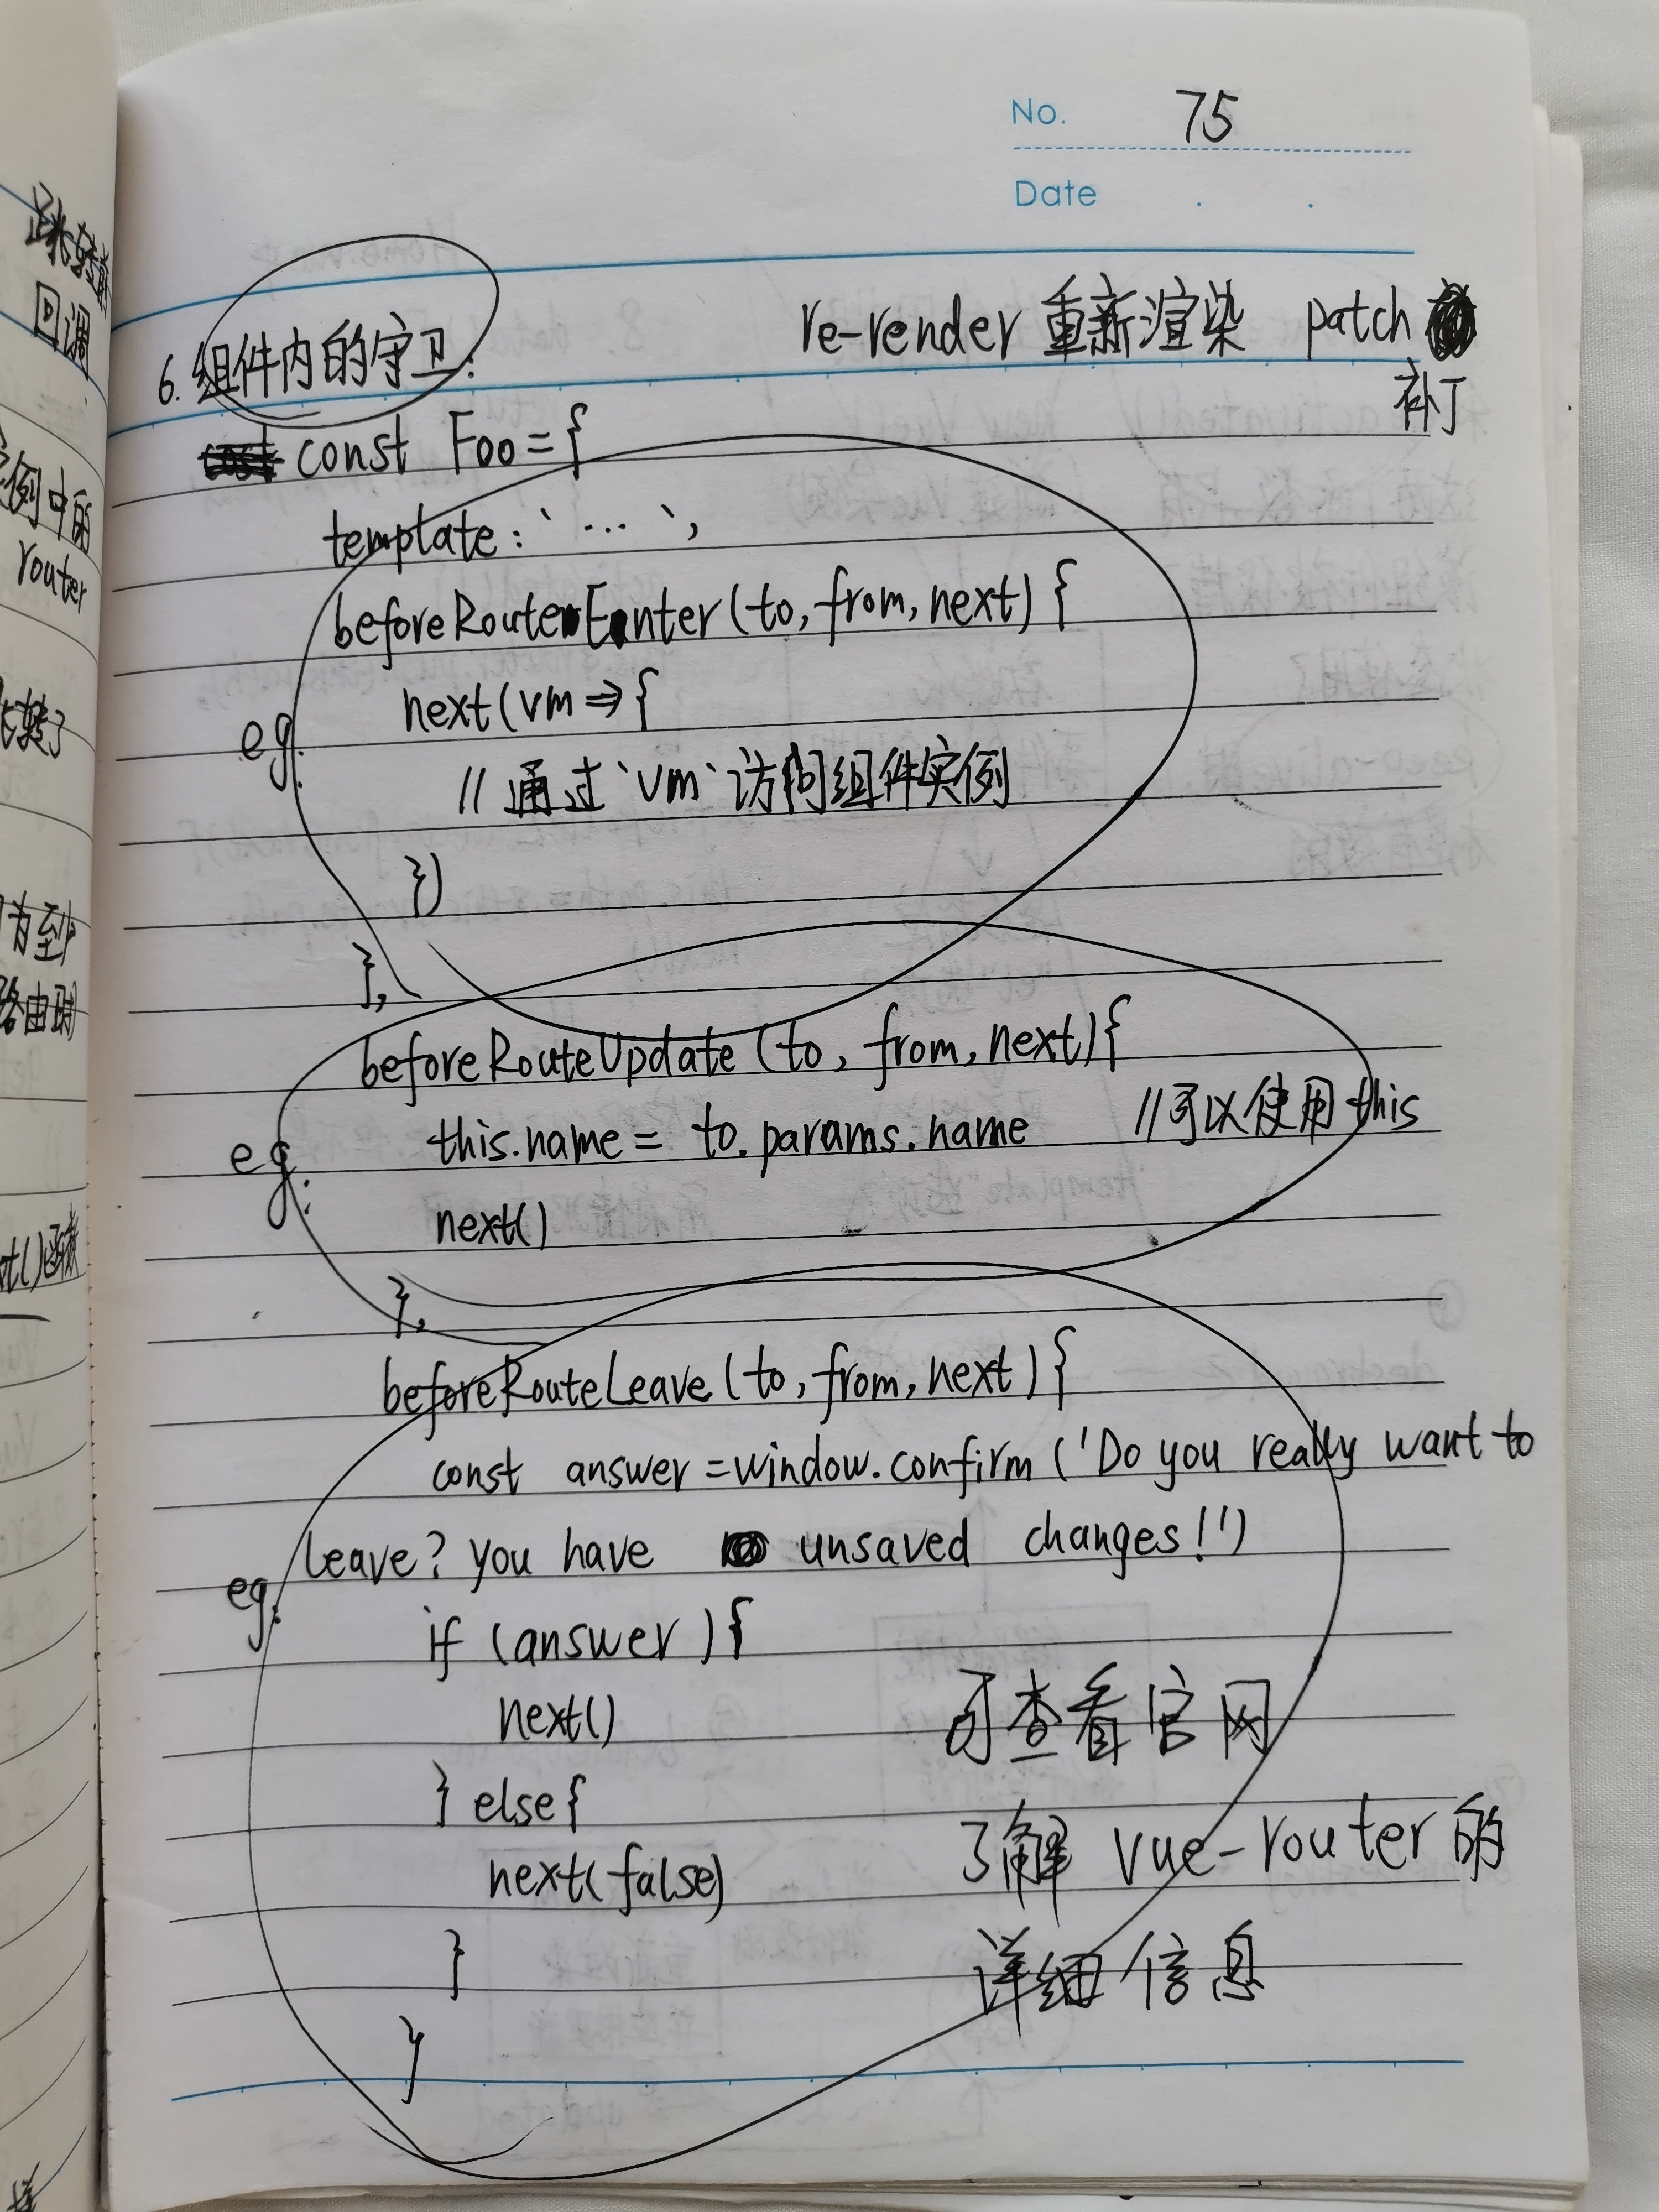 No. 75
Date . .
跳转前
回调
例中的
router
转了
为至少
路由时
t()函数
6. 组件内的守卫:
re-render 重新渲染 patch
补丁
const Foo = {
template: `...`,
beforeRouteEnter(to, from, next) {
eg: next(vm => {
// 通过`vm`访问组件实例
})
},
beforeRouteUpdate(to, from, next){
eg: this.name = to.params.name //可以使用this
next()
},
beforeRouteLeave(to, from, next) {
const answer = window.confirm('Do you really want to
leave? you have unsaved changes!')
eg: if (answer) {
next()
} else {
next(false)
}
}
可查看官网
了解 vue-router的
详细信息